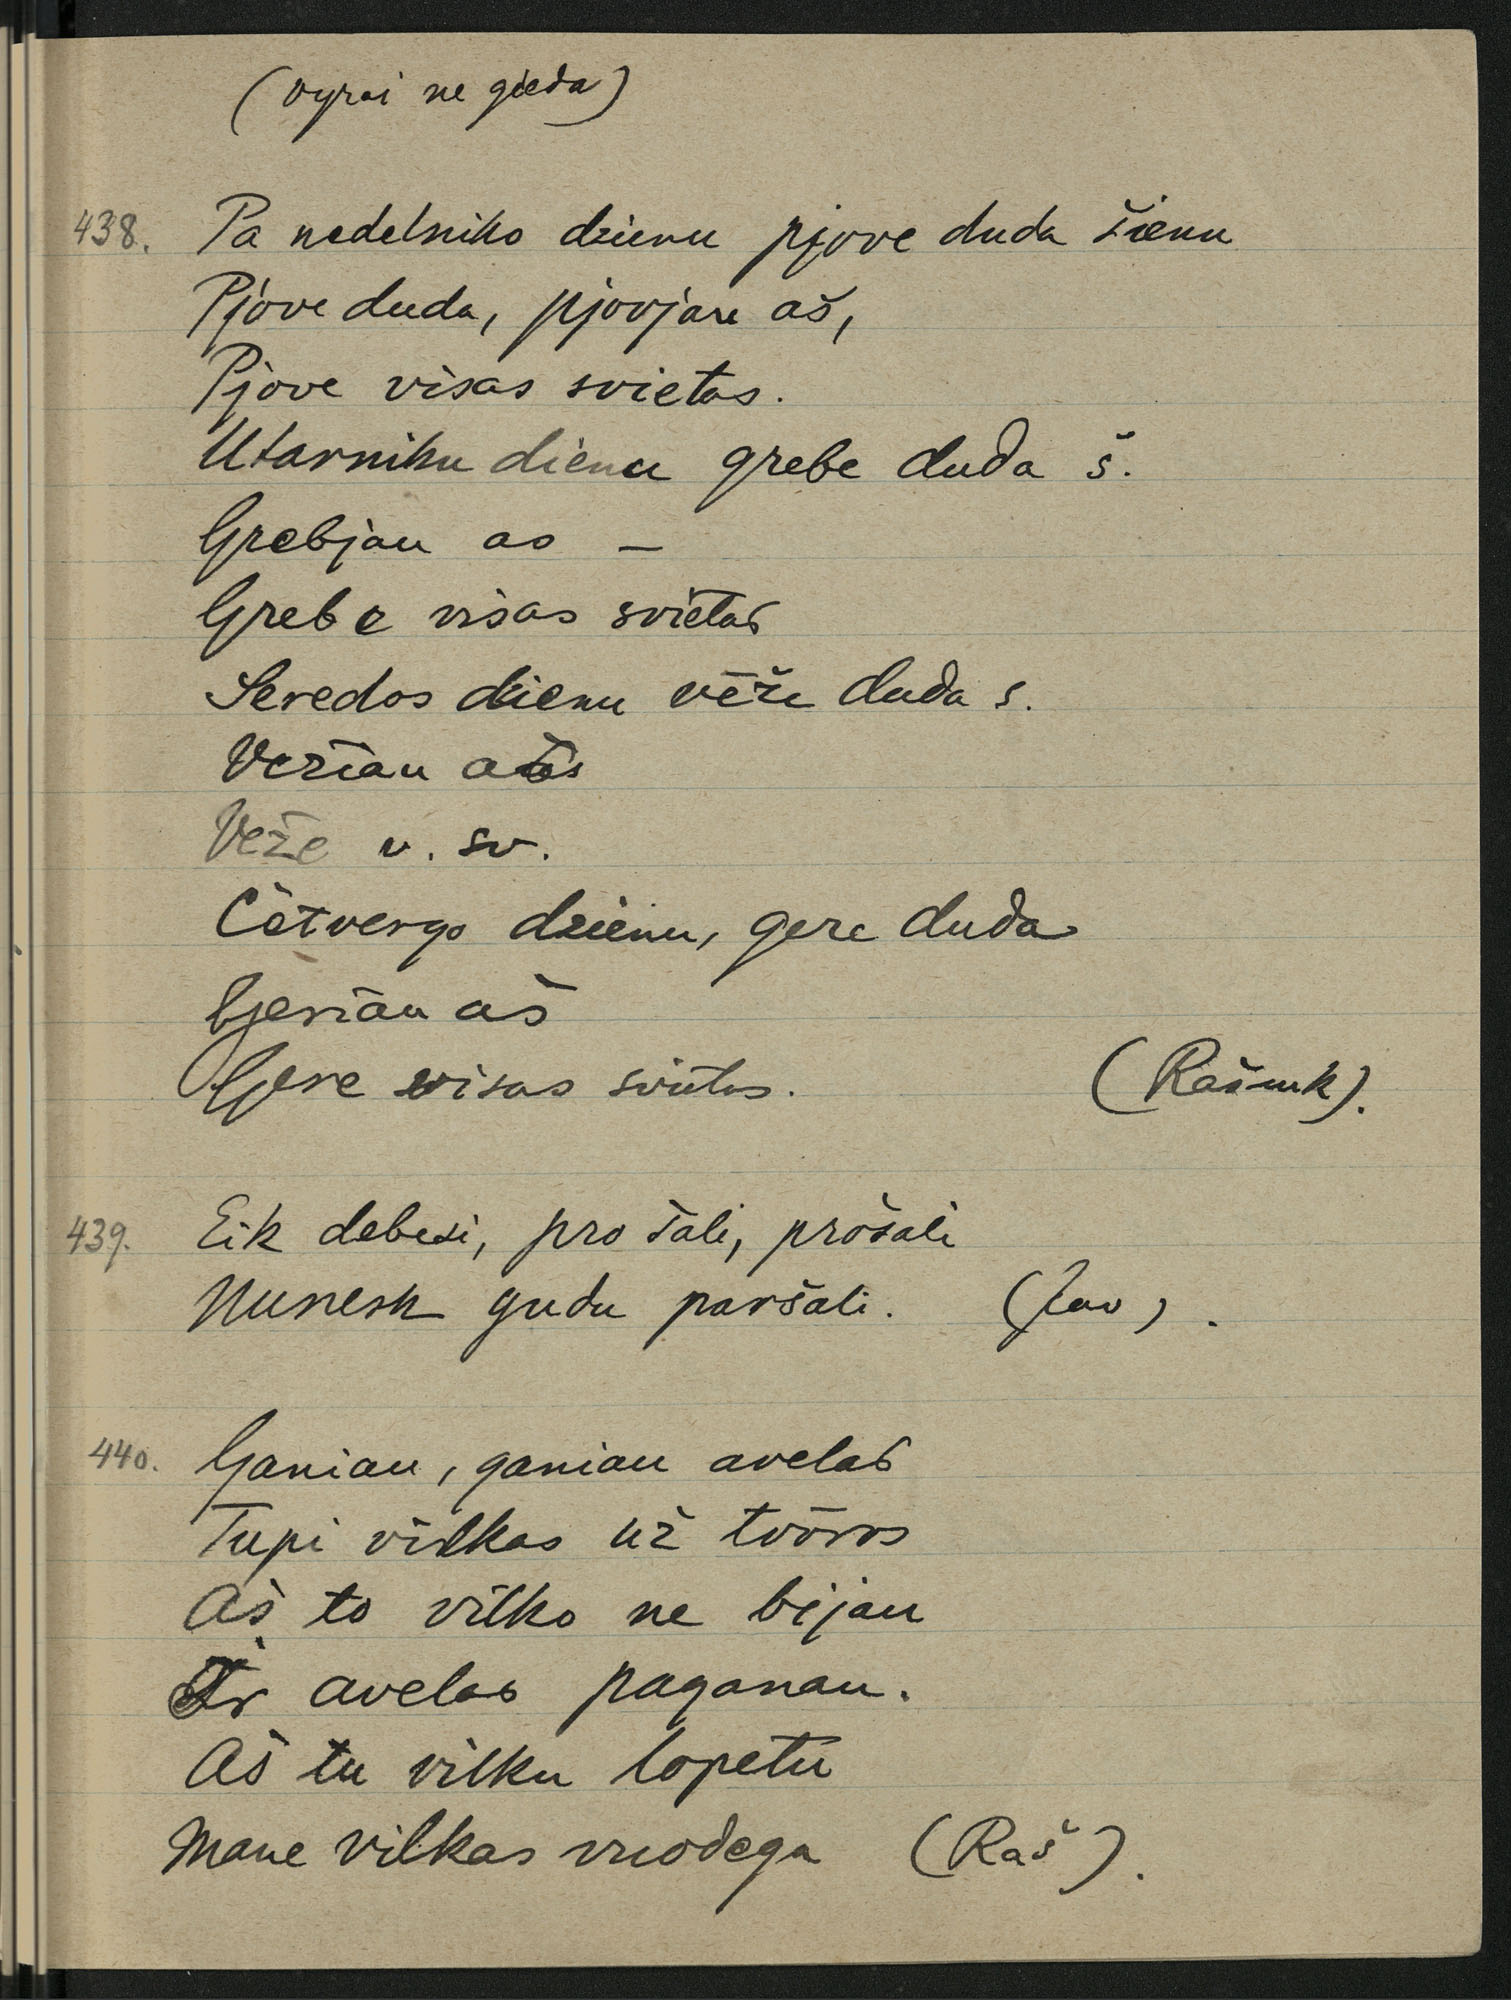 (vyrai ne gieda)
438. Pa nedelniko dzienu pjove duda šienu
Pjove duda, pjovjau aš,
Pjove visas svietas.
Utarniku dienu grebe duda š.
Grebjau as –
Grebe visas svietas
Seredos dzienu vēže duda s.
Vežiau aš
Veže v. sv.
Cetvergo dzienu, gere duda
Geriau aš
Gere visas svietas.
(Rašmk).
439. Eik debesi, pro šali, prošali
Nunesk gudu paršali.
440. Ganiau, ganiau avelas
Tupi vilkas už tvōros
Aš to vilko ne bijau
Ir avelas paganau.
Aš tu vilku lopetu
Mane vilkas vuodega (Raš).